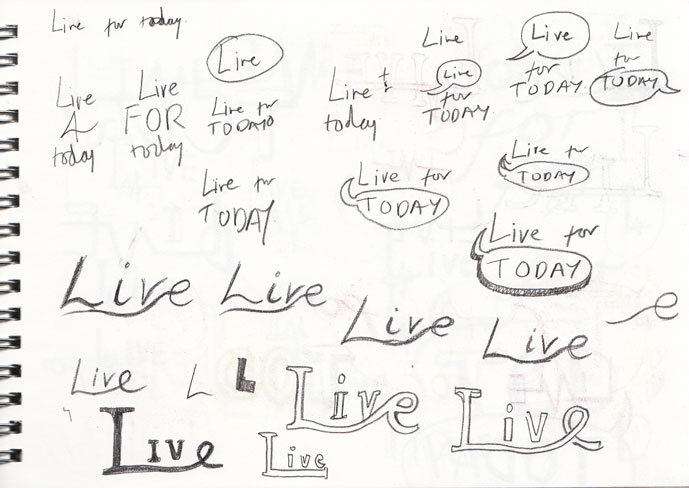 Live for today
Live
4
today
Live
FOR
today
Live
Live for
TODAY
Live
today
Live
Live
for
TODAY
Live
for
TODAY
Live
for
TODAY
Live for
TODAY
Live for
TODAY
Live for
TODAY
Live for
TODAY
Live
Live
Live
Live
e
Live
L
L
Live
Live
Live
Live